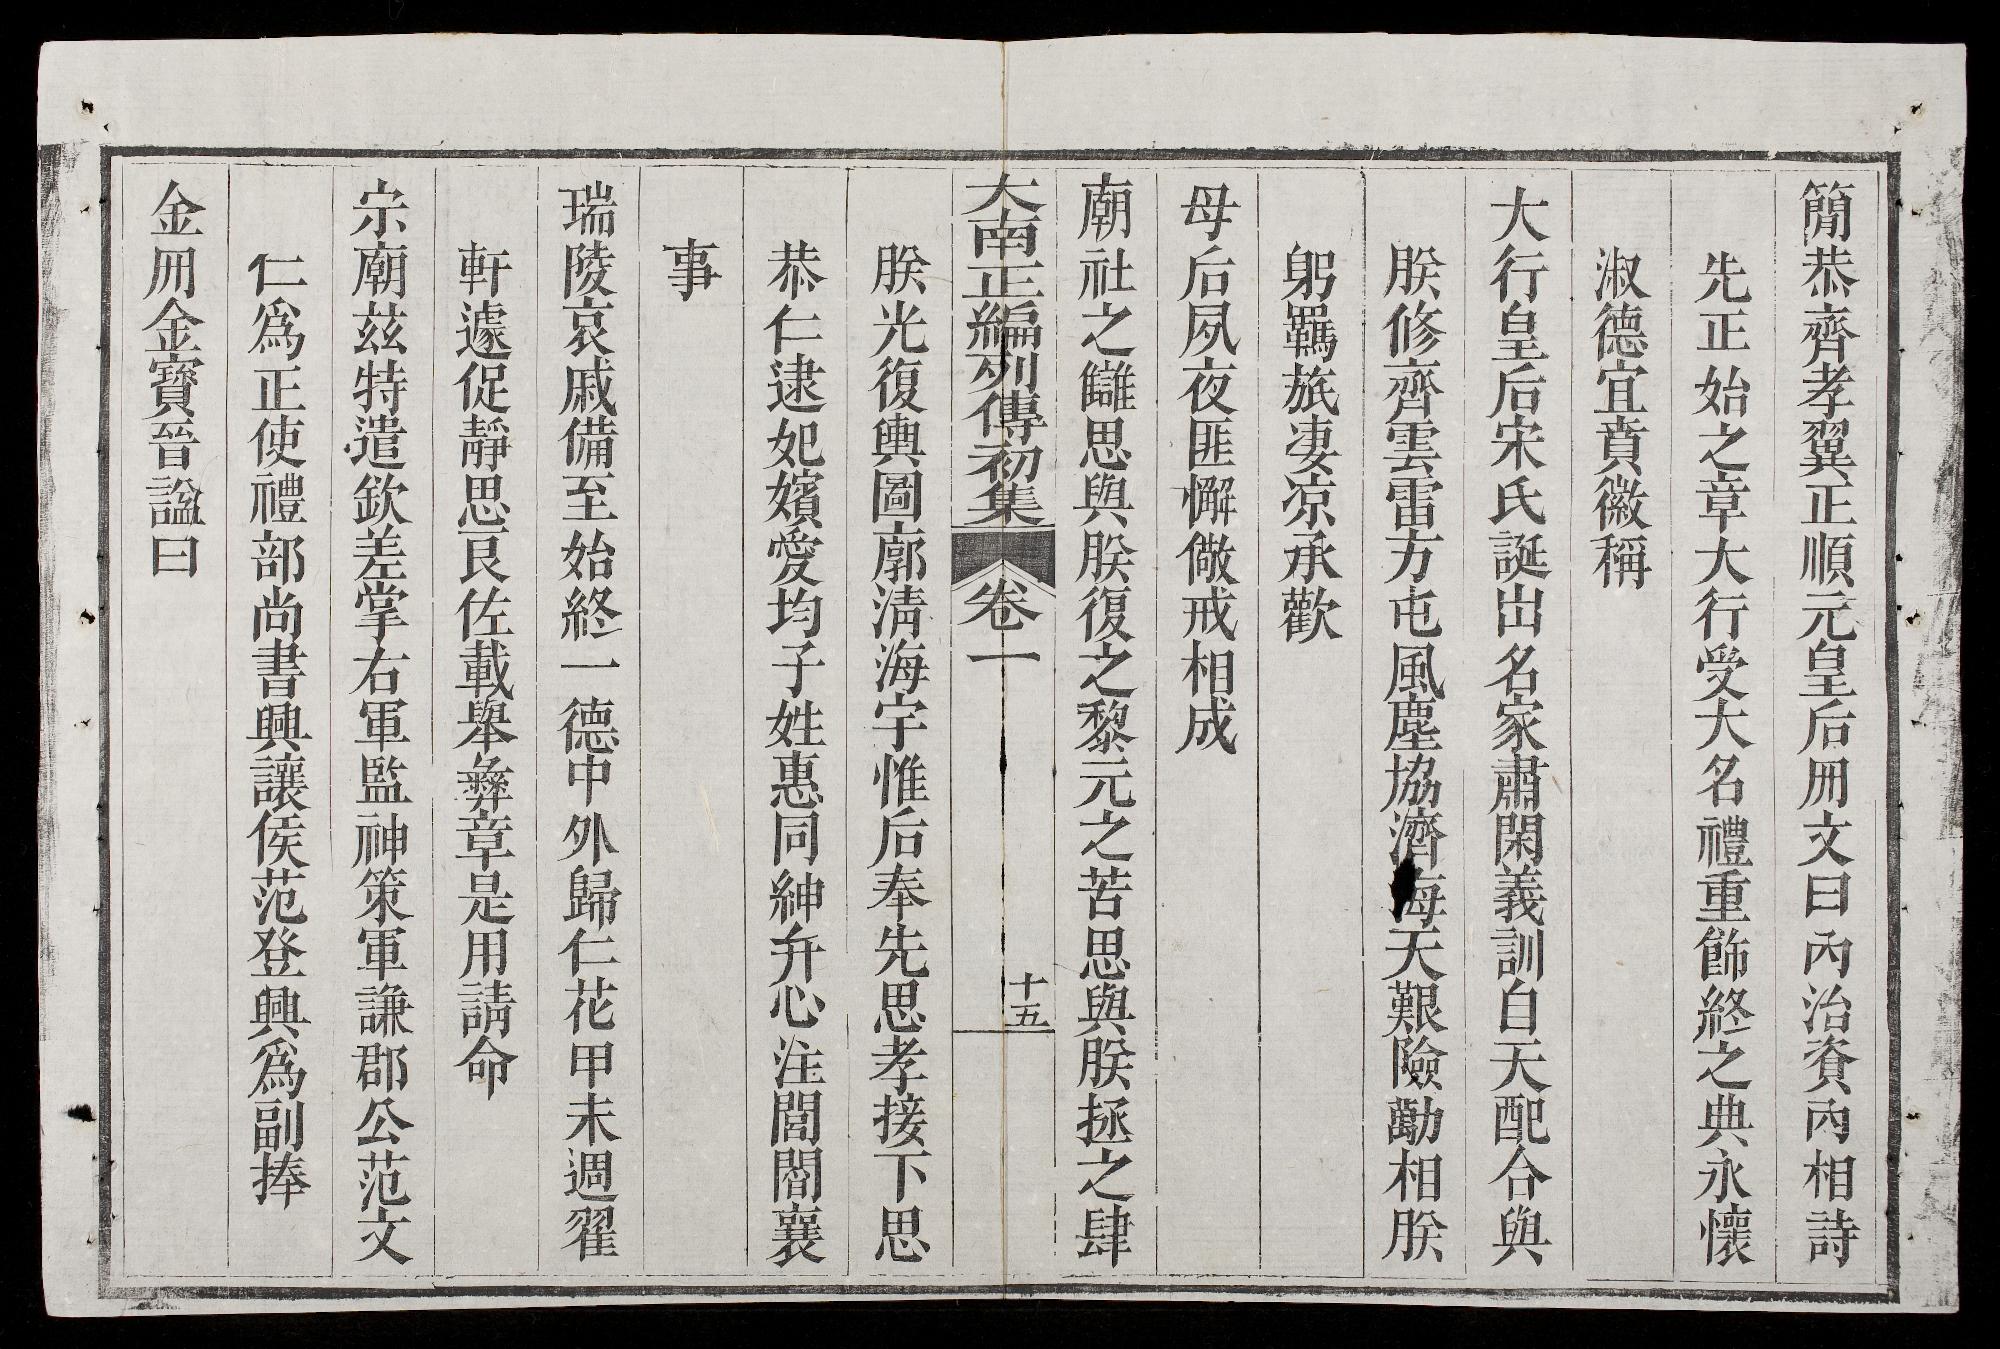 簡恭齊孝翼正順元皇后冊文曰內治資內相詩
先正始之章大行受大名禮重飾終之典永懷
淑德宜賁徽稱
大行皇后宋氏誕出名家肅閑義訓自天配合與
朕修齊雲雷方屯風塵協濟海天艱險勷相朕
躬羈旅凄凉承歡
母后夙夜匪懈儆戒相成
廟社之讎思與朕復之黎元之苦思與朕拯之肆
大南正編列傳初集 卷一 十五
朕光復輿圖廓淸海宇惟后奉先思孝接下思
恭仁逮妃嬪愛均子姓惠同紳弁心注閭閻襄
事
瑞陵哀戚備至始終一德中外歸仁花甲未週翟
軒遽促靜思良佐載舉彝章是用請命
宗廟茲特遣欽差掌右軍監神策軍謙郡公范文
仁爲正使禮部尚書興讓侯范登興爲副捧
金冊金寶晉謚曰